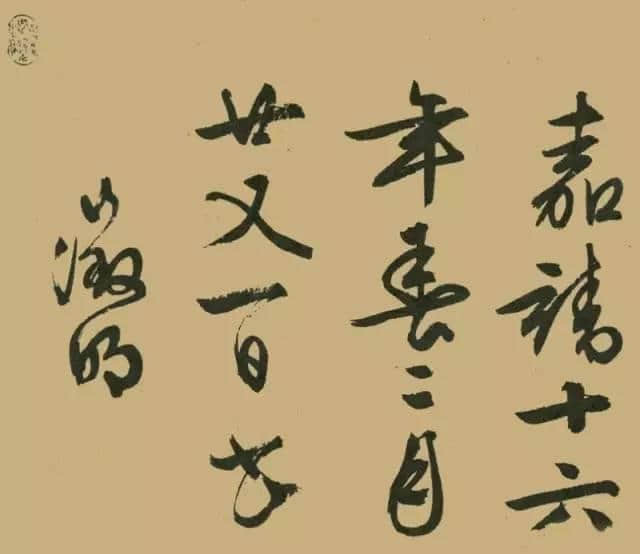 嘉靖十六
年春二月
廿又一日
徵明